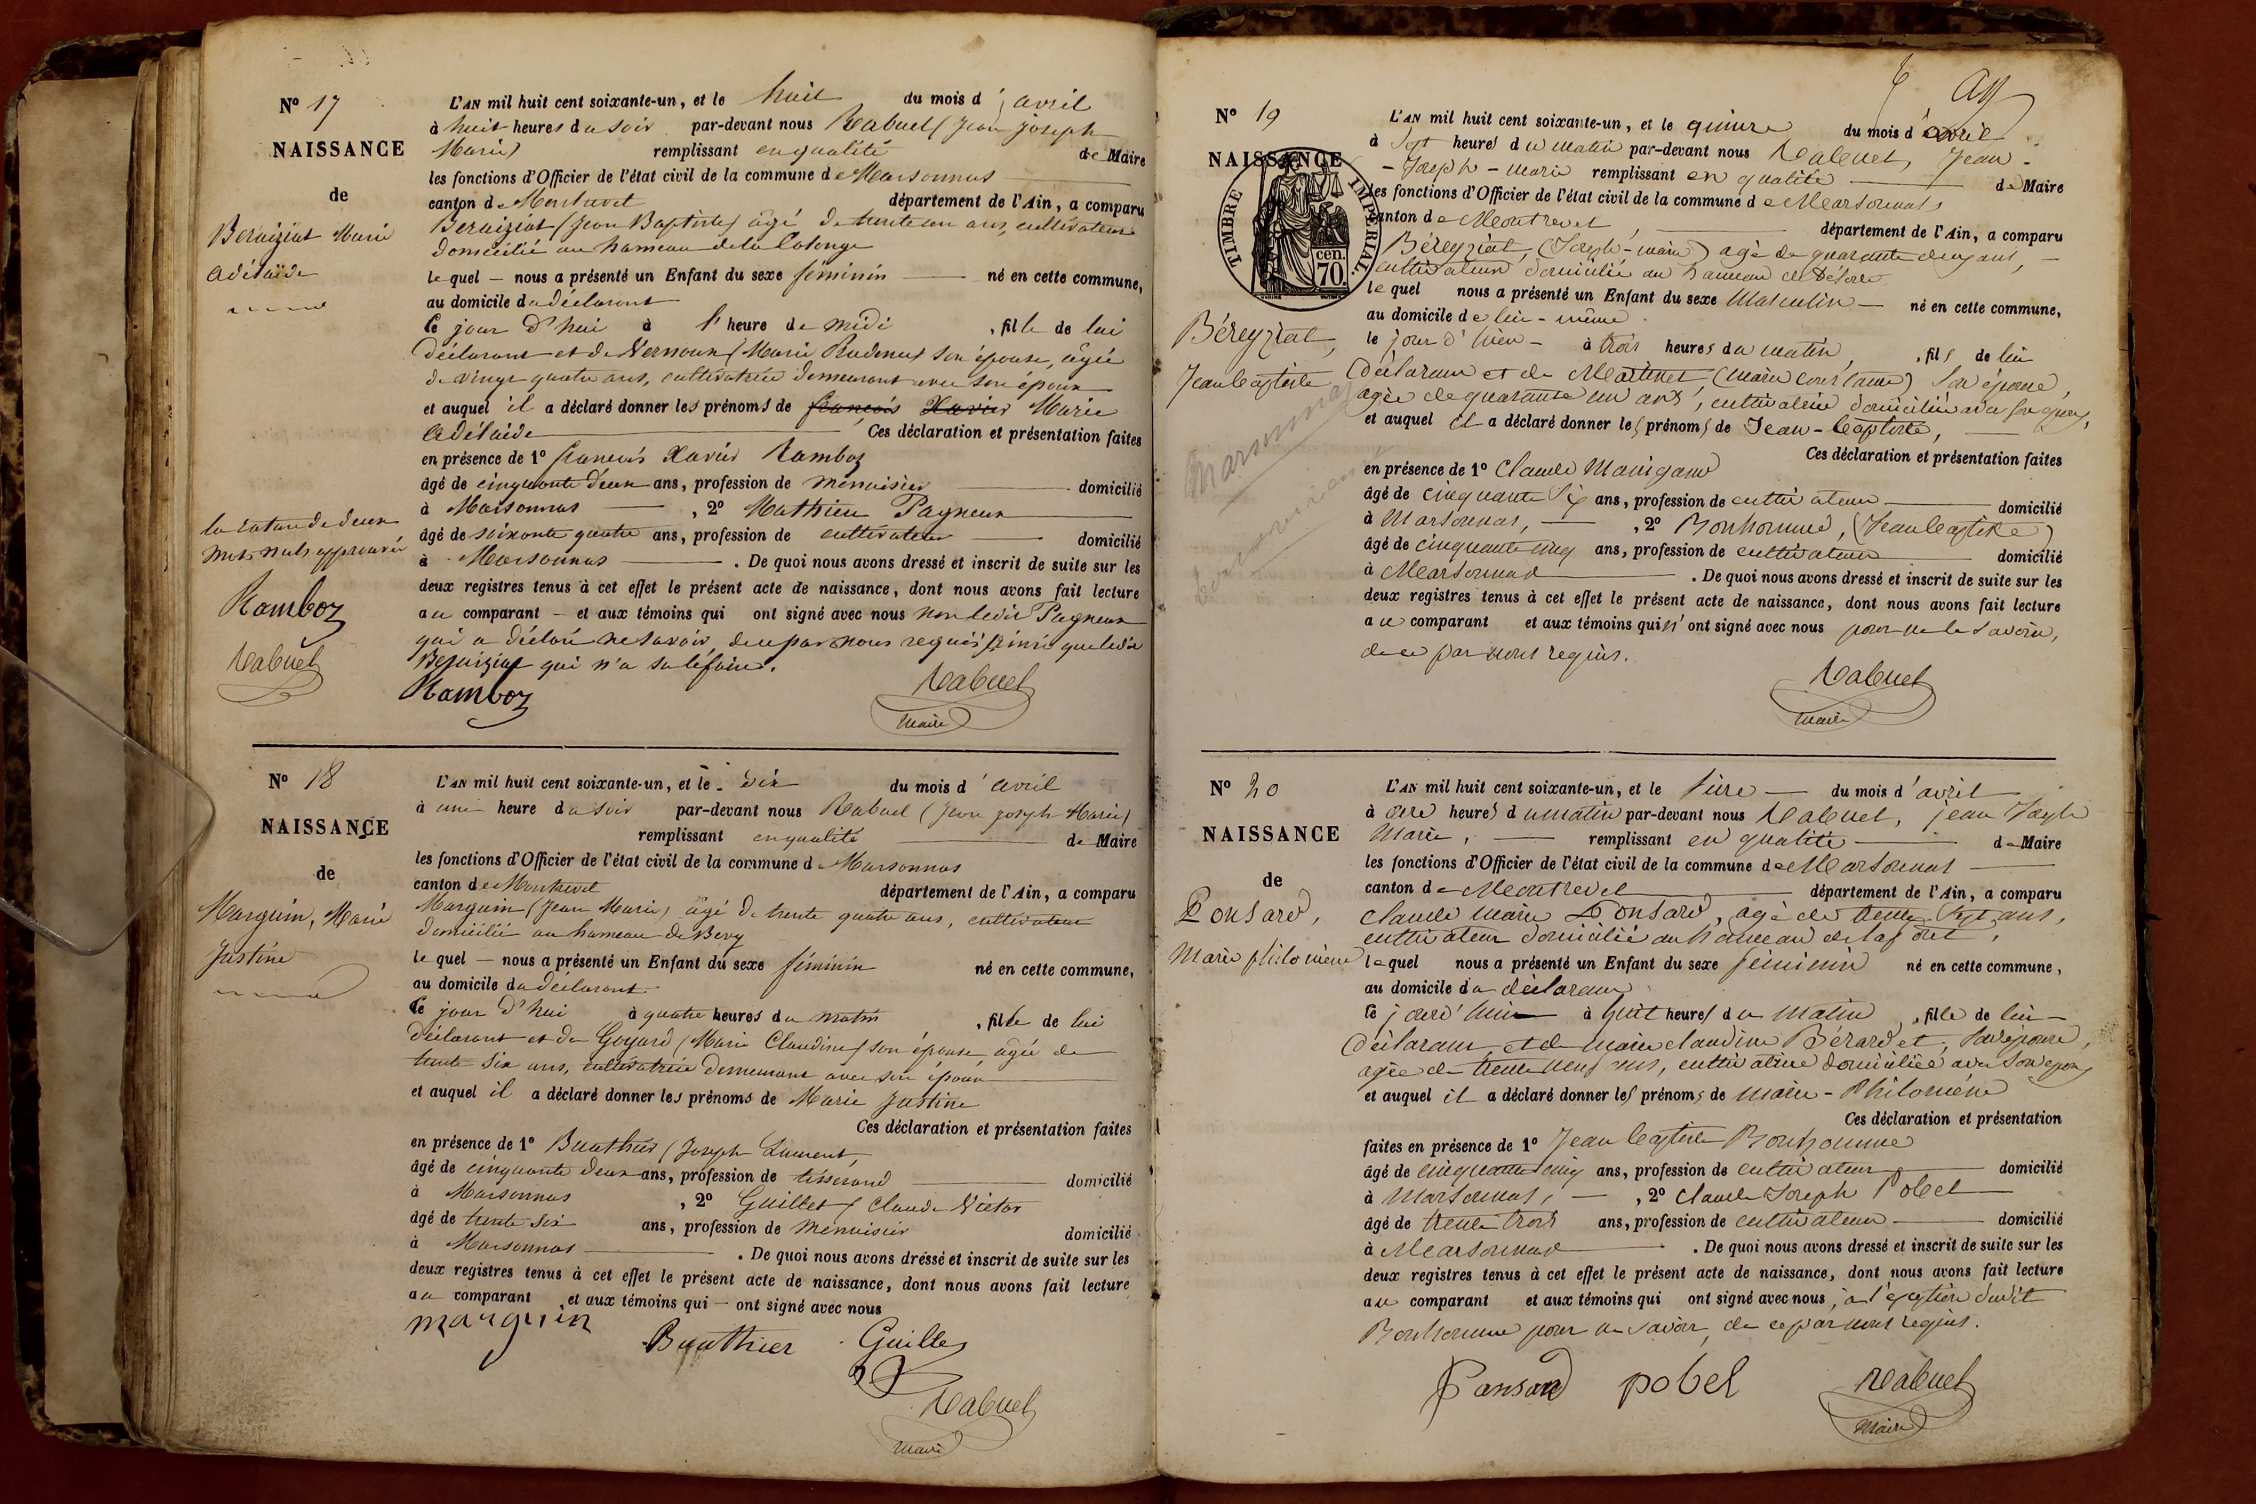 N° 17
NAISSANCE
de
Beraiziat Marie
Adélaïde
L'AN mil huit cent soixante-un, et le huit du mois d'avril
à huit heures du soir par-devant nous Rabuel (Jean Joseph
Marie) remplissant en qualité de Maire
les fonctions d'Officier de l'état civil de la commune de Marsonnas
canton de Montrevel département de l'Ain, a comparu
Beraiziat (Jean Baptiste) âgé de trente un ans, cultivateur
domicilié au hameau de la
le quel — nous a présenté un Enfant du sexe féminin né en cette commune,
au domicile du déclarant
Ce jour d'hui à l'heure de midi, fille de lui
déclarant et de Vernoux (Marie) son épouse, âgée
de vingt quatre ans, cultivatrice demeurant avec son époux
et auquel il a déclaré donner les prénoms de françois Xavier Marie
Adélaïde Ces déclaration et présentation faites
en présence de 1° françois Xavier Ramboz
âgé de cinquante deux ans, profession de menuisier domicilié
à Marsonnas, 2° Mathieu Pagneux
âgé de soixante quatre ans, profession de cultivateur domicilié
à Marsonnas. De quoi nous avons dressé et inscrit de suite sur les
deux registres tenus à cet effet le présent acte de naissance, dont nous avons fait lecture
au comparant — et aux témoins qui ont signé avec nous non ledit Pagneux
qui a déclaré ne savoir, de ce par nous requis ainsi que ledit
Beraiziat qui n'a su le faire.
la rature de deux
mots nuls approuvée
Ramboz
Rabuel
Ramboz
Rabuel
Maire
N° 18
NAISSANCE
de
Marguin, Marie
Justine
L'AN mil huit cent soixante-un, et le dix du mois d'avril
à une heure du soir par-devant nous Rabuel (Jean Joseph Marie)
remplissant en qualité de Maire
les fonctions d'Officier de l'état civil de la commune de Marsonnas
canton de Montrevel département de l'Ain, a comparu
Marguin (Jean Marie) âgé de trente quatre ans, cultivateur
domicilié au hameau de Bevy
le quel — nous a présenté un Enfant du sexe féminin né en cette commune,
au domicile du déclarant
Ce jour d'hui à quatre heures du matin, fille de lui
déclarant et de Goyard (Marie Claudine) son épouse âgée de
trente six ans, cultivatrice demeurant avec son époux
et auquel il a déclaré donner les prénoms de Marie Justine
Ces déclaration et présentation faites
en présence de 1° Buathier (Joseph Laurent)
âgé de cinquante deux ans, profession de tisserand domicilié
à Marsonnas, 2° Guillet (Claude Victor
âgé de trente six ans, profession de menuisier domicilié
à Marsonnas. De quoi nous avons dressé et inscrit de suite sur les
deux registres tenus à cet effet le présent acte de naissance, dont nous avons fait lecture
au comparant, et aux témoins qui — ont signé avec nous
marguin
Buathier Guillet
Rabuel
Maire
N° 19
NAISSANCE
TIMBRE IMPERIAL.
cen.
70.
Béreyziat,
Jean baptiste
Marsonnas
L'AN mil huit cent soixante-un, et le quinze du mois d'avril
à sept heures du matin par-devant nous Rabuel, Jean-
-Joseph-marie remplissant en qualité de Maire
les fonctions d'Officier de l'état civil de la commune de Marsonnas,
canton de Montrevel, département de l'Ain, a comparu
Béreyziat, (Joseph-marie) âgé de quarante cinq ans,
cultivateur domicilié au hameau de
le quel nous a présenté un Enfant du sexe Masculin né en cette commune,
au domicile de lui-même
le jour d'hier à trois heures du matin, fils de lui
déclarant et de Martinet (marie constance) son épouse,
agée de quarante un ans, cultivatrice domiciliée avec son époux,
et auquel il a déclaré donner les prénoms de Jean-baptiste,
Ces déclaration et présentation faites
en présence de 1° Claude Manigand
âgé de cinquante six ans, profession de cultivateur domicilié
à Marsonnas, 2° Bonhomme, (Jean baptiste)
âgé de cinquante cinq ans, profession de cultivateur domicilié
à Marsonnas. De quoi nous avons dressé et inscrit de suite sur les
deux registres tenus à cet effet le présent acte de naissance, dont nous avons fait lecture
au comparant et aux témoins qui n'ont signé avec nous pour ne le savoir,
de ce par nous requis.
Rabuel
Maire
N° 20
NAISSANCE
de
Ponsard,
Marie philomène
L'AN mil huit cent soixante-un, et le seize du mois d'avril
à onze heures du matin par-devant nous Rabuel, jean Joseph
Marie, remplissant en qualité de Maire
les fonctions d'Officier de l'état civil de la commune de Marsonnas
canton de Montrevel département de l'Ain, a comparu
Claude marie Ponsard, agé de trente sept ans,
cultivateur domicilié au hameau de la forêt,
le quel nous a présenté un Enfant du sexe féminin né en cette commune,
au domicile du déclarant
Ce jourd'hui à huit heures du matin, fille de lui
déclarant et de marie claudine Bérardet, son épouse,
agée de trente neuf ans, cultivatrice domiciliée avec son époux
et auquel il a déclaré donner les prénoms de marie-Philomène
Ces déclaration et présentation
faites en présence de 1° Jean baptiste Bonhomme
âgé de cinquante cinq ans, profession de cultivateur domicilié
à Marsonnas, 2° Claude Joseph Pobel
âgé de trente trois ans, profession de cultivateur domicilié
à Marsonnas. De quoi nous avons dressé et inscrit de suite sur les
deux registres tenus à cet effet le présent acte de naissance, dont nous avons fait lecture
au comparant et aux témoins qui ont signé avec nous, à l'exception dudit
Bonhomme pour ne savoir, de ce par nous requis.
Ponsard pobel Rabuel
Maire